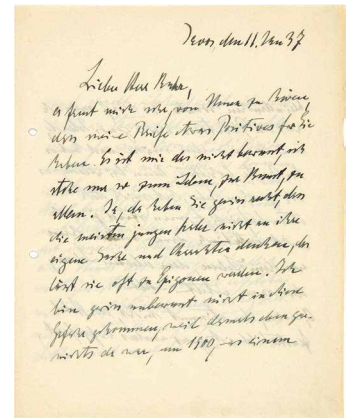 den 11. 37
Lieber Herr
es freut mich sehr, von Ihnen zu hören,
dass meine Briefe etwas Positives für Sie
haben. Es ist mir das nicht bewusst, ich
stehe nur so zum Leben, zur Kunst, zu
allem. Ja, da haben Sie gewiss recht, dass
die meisten jungen Maler nicht an ihre
eigene und Charakter denken, das
lässt sie oft zu Epigonen werden. Ich
bin ganz unbewusst nicht in diese
Gefahr gekommen, weil damals eben gar
nichts da war, um 1900, einem